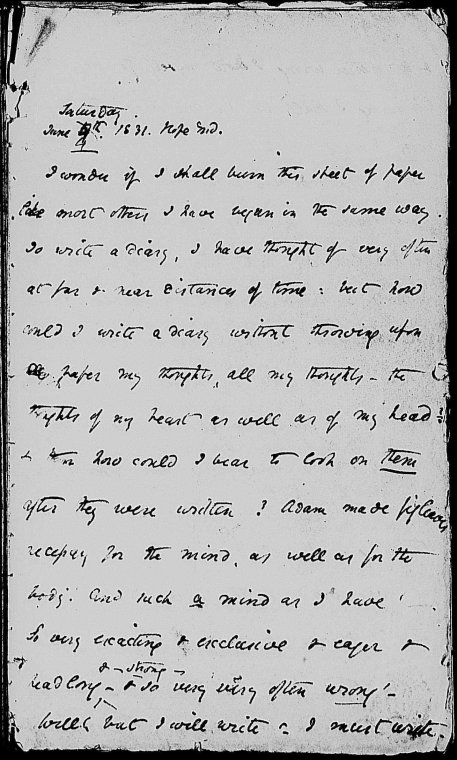 Saturday
June 4th. 1831. Hope End.
I wonder if I shall burn this sheet of paper
like most others I have begun in the same way.
To write a diary, I have thought of very often
at far & near distances of time: but how
could I write a diary without throwing upon
paper my thoughts, all my thoughts – the
thoughts of my heart as well as of my head?
& how could I bear to look on them
after they were written? Adam made figleaves
necessary for the mind, as well as for the
body. And such a mind as I have!
So very exacting & exclusive & eager &
& strong –
headlong – & so very very often wrong! –
Well! but I will write – I must write –